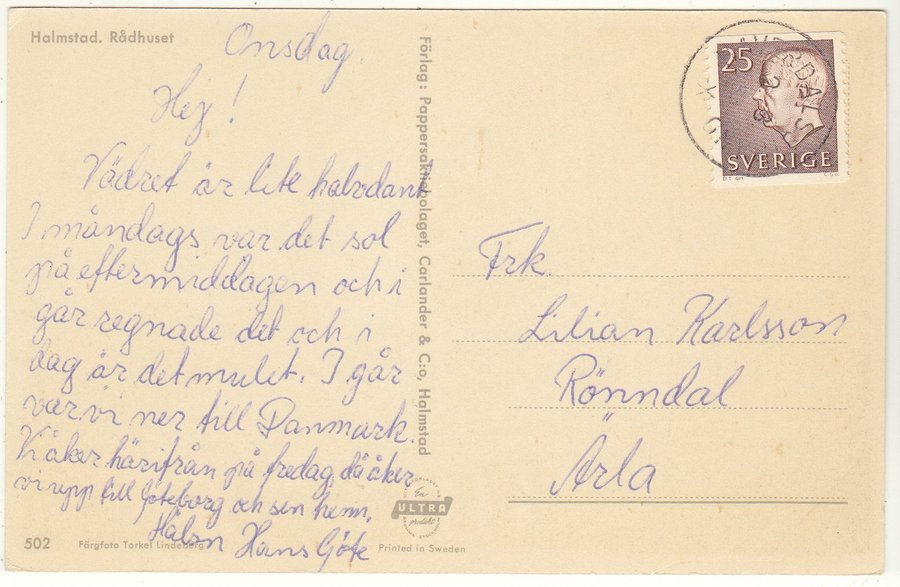 Halmstad. Rådhuset
Onsdag.
Hej!
Vädret är lite halvdant
I måndags var det sol
på eftermiddagen och i
går regnade det och i
dag är det mulet. I går
var vi ner till Danmark.
Vi åker härifrån på fredag, då åker
vi upp till Göteborg och sen hem.
Hälsn Hans Göte
502
Färgfoto Torkel Lindeberg
Printed in Sweden
Förlag: Pappersaktiebolaget, Carlander & C:o, Halmstad
En
ULTRA
produkt
25
SVERIGE
Frk.
Lilian Karlsson
Rönndal
Ärla